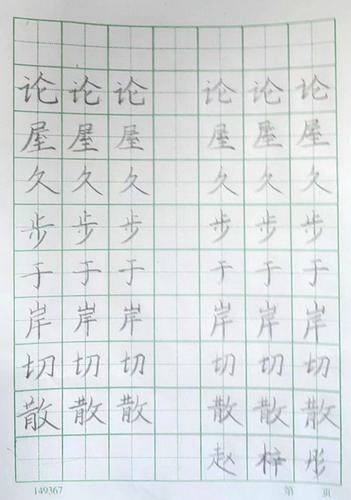 论论论 论论论
屋屋屋 屋屋屋
久久久 久久久
步步步 步步步
于于于 于于于
岸岸岸 岸岸岸
切切切 切切切
散散散 散散散
赵梓彤
149367 第 页